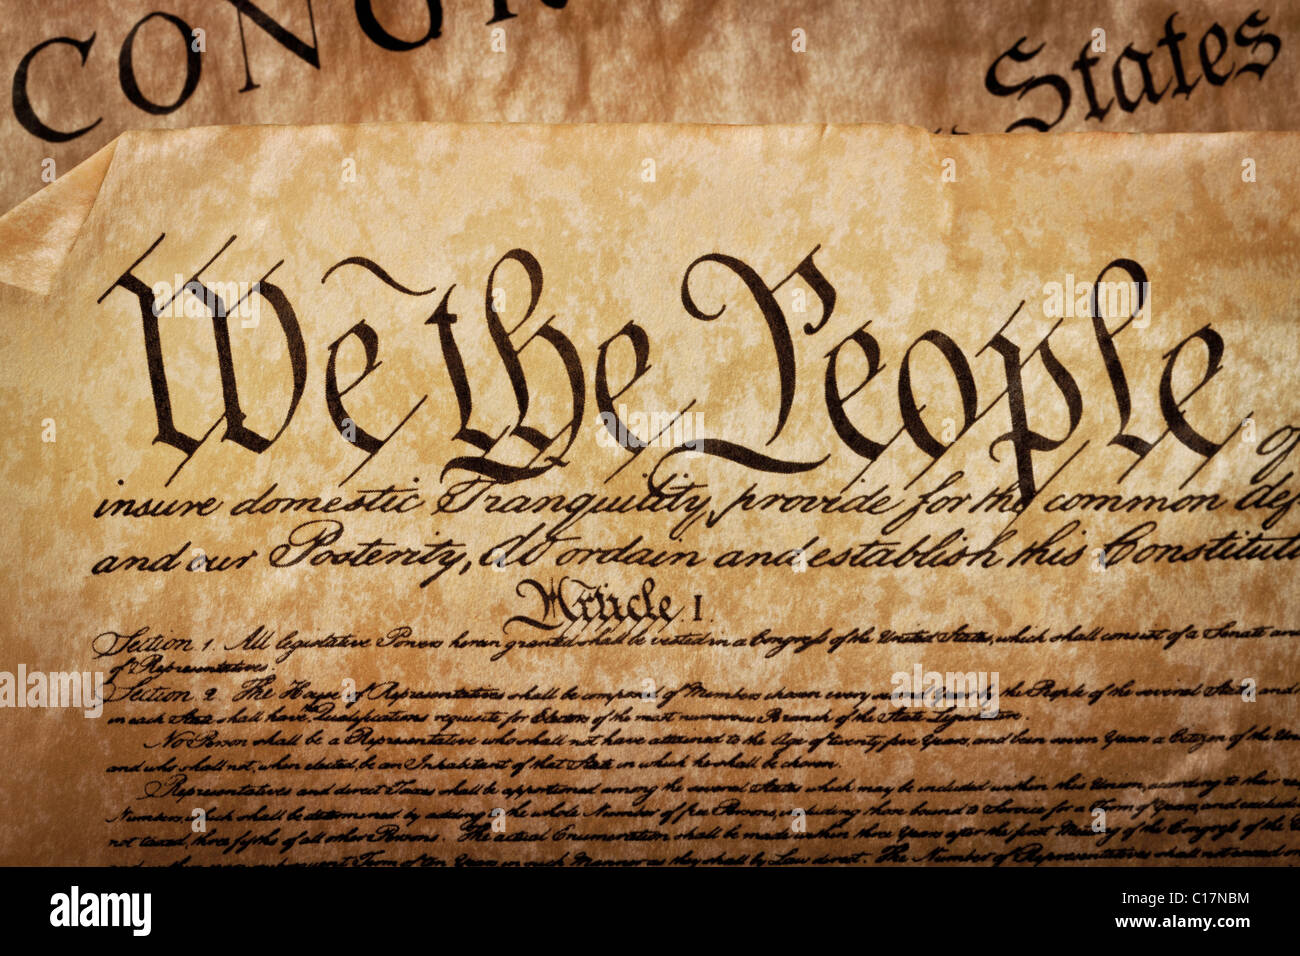 CONGR
States
We the People of
insure domestic Tranquility, provide for the common def
and our Posterity, do ordain and establish this Constituti
Article. I.
Section. 1. All legislative Powers herein granted shall be vested in a Congress of the United States, which shall consist of a Senate and
of Representatives.
Section. 2. The House of Representatives shall be composed of Members chosen every second Year by the People of the several States, and
in each State shall have the Qualifications requisite for Electors of the most numerous Branch of the State Legislature.
No Person shall be a Representative who shall not have attained to the Age of twenty five Years, and been seven Years a Citizen of the Uni
and who shall not, when elected, be an Inhabitant of that State in which he shall be chosen.
Representatives and direct Taxes shall be apportioned among the several States which may be included within this Union, according to their
Numbers, which shall be determined by adding to the whole Number of free Persons, including those bound to Service for a Term of Years, and exclud
not taxed, three fifths of all other Persons. The actual Enumeration shall be made within three Years after the first Meeting of the Congress of the
subsequent Term of ten Years, in such Manner as they shall by Law direct. The Number of Representatives shall not exceed
alamy
Image ID: C17NBM
www.alamy.com